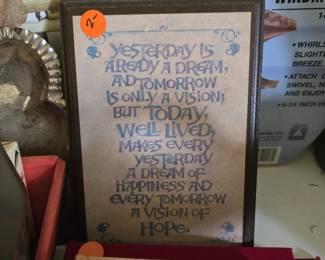 2-
YESTERDAY IS
AREADY A DREAM,
AND TOMORROW
IS ONLY A VISION;
BUT TODAY,
WELL LIVED,
MAKES EVERY
YESTERDAY
A DREAM OF
HAPPINESS AND
EVERY TOMORROW
A VISION OF
HOPE.
• WHIRLS
SLIGHT
BREEZE
• ATTACH
SWIVEL,
AND ENJOY